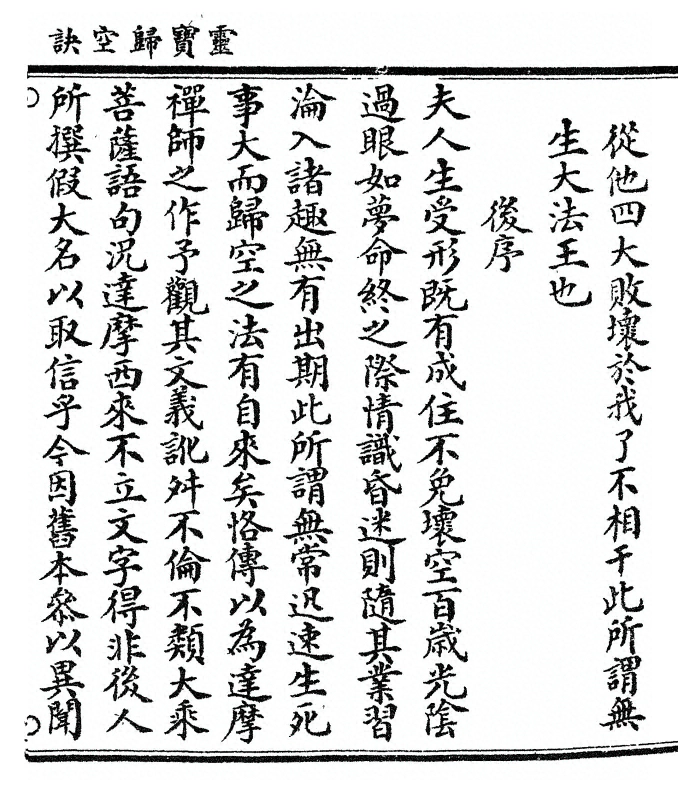 靈寶歸空訣
從他四大敗壞於我了不相干此所謂無
生大法王也
後序
夫人生受形既有成住不免壞空百歲光陰
過眼如夢命終之際情識昏迷則隨其業習
淪入諸趣無有出期此所謂無常迅速生死
事大而歸空之法有自來矣恪傳以為達摩
禪師之作予觀其文義訛舛不倫不類大乘
菩薩語句況達摩西來不立文字得非後人
所撰假大名以取信乎今因舊本參以異聞